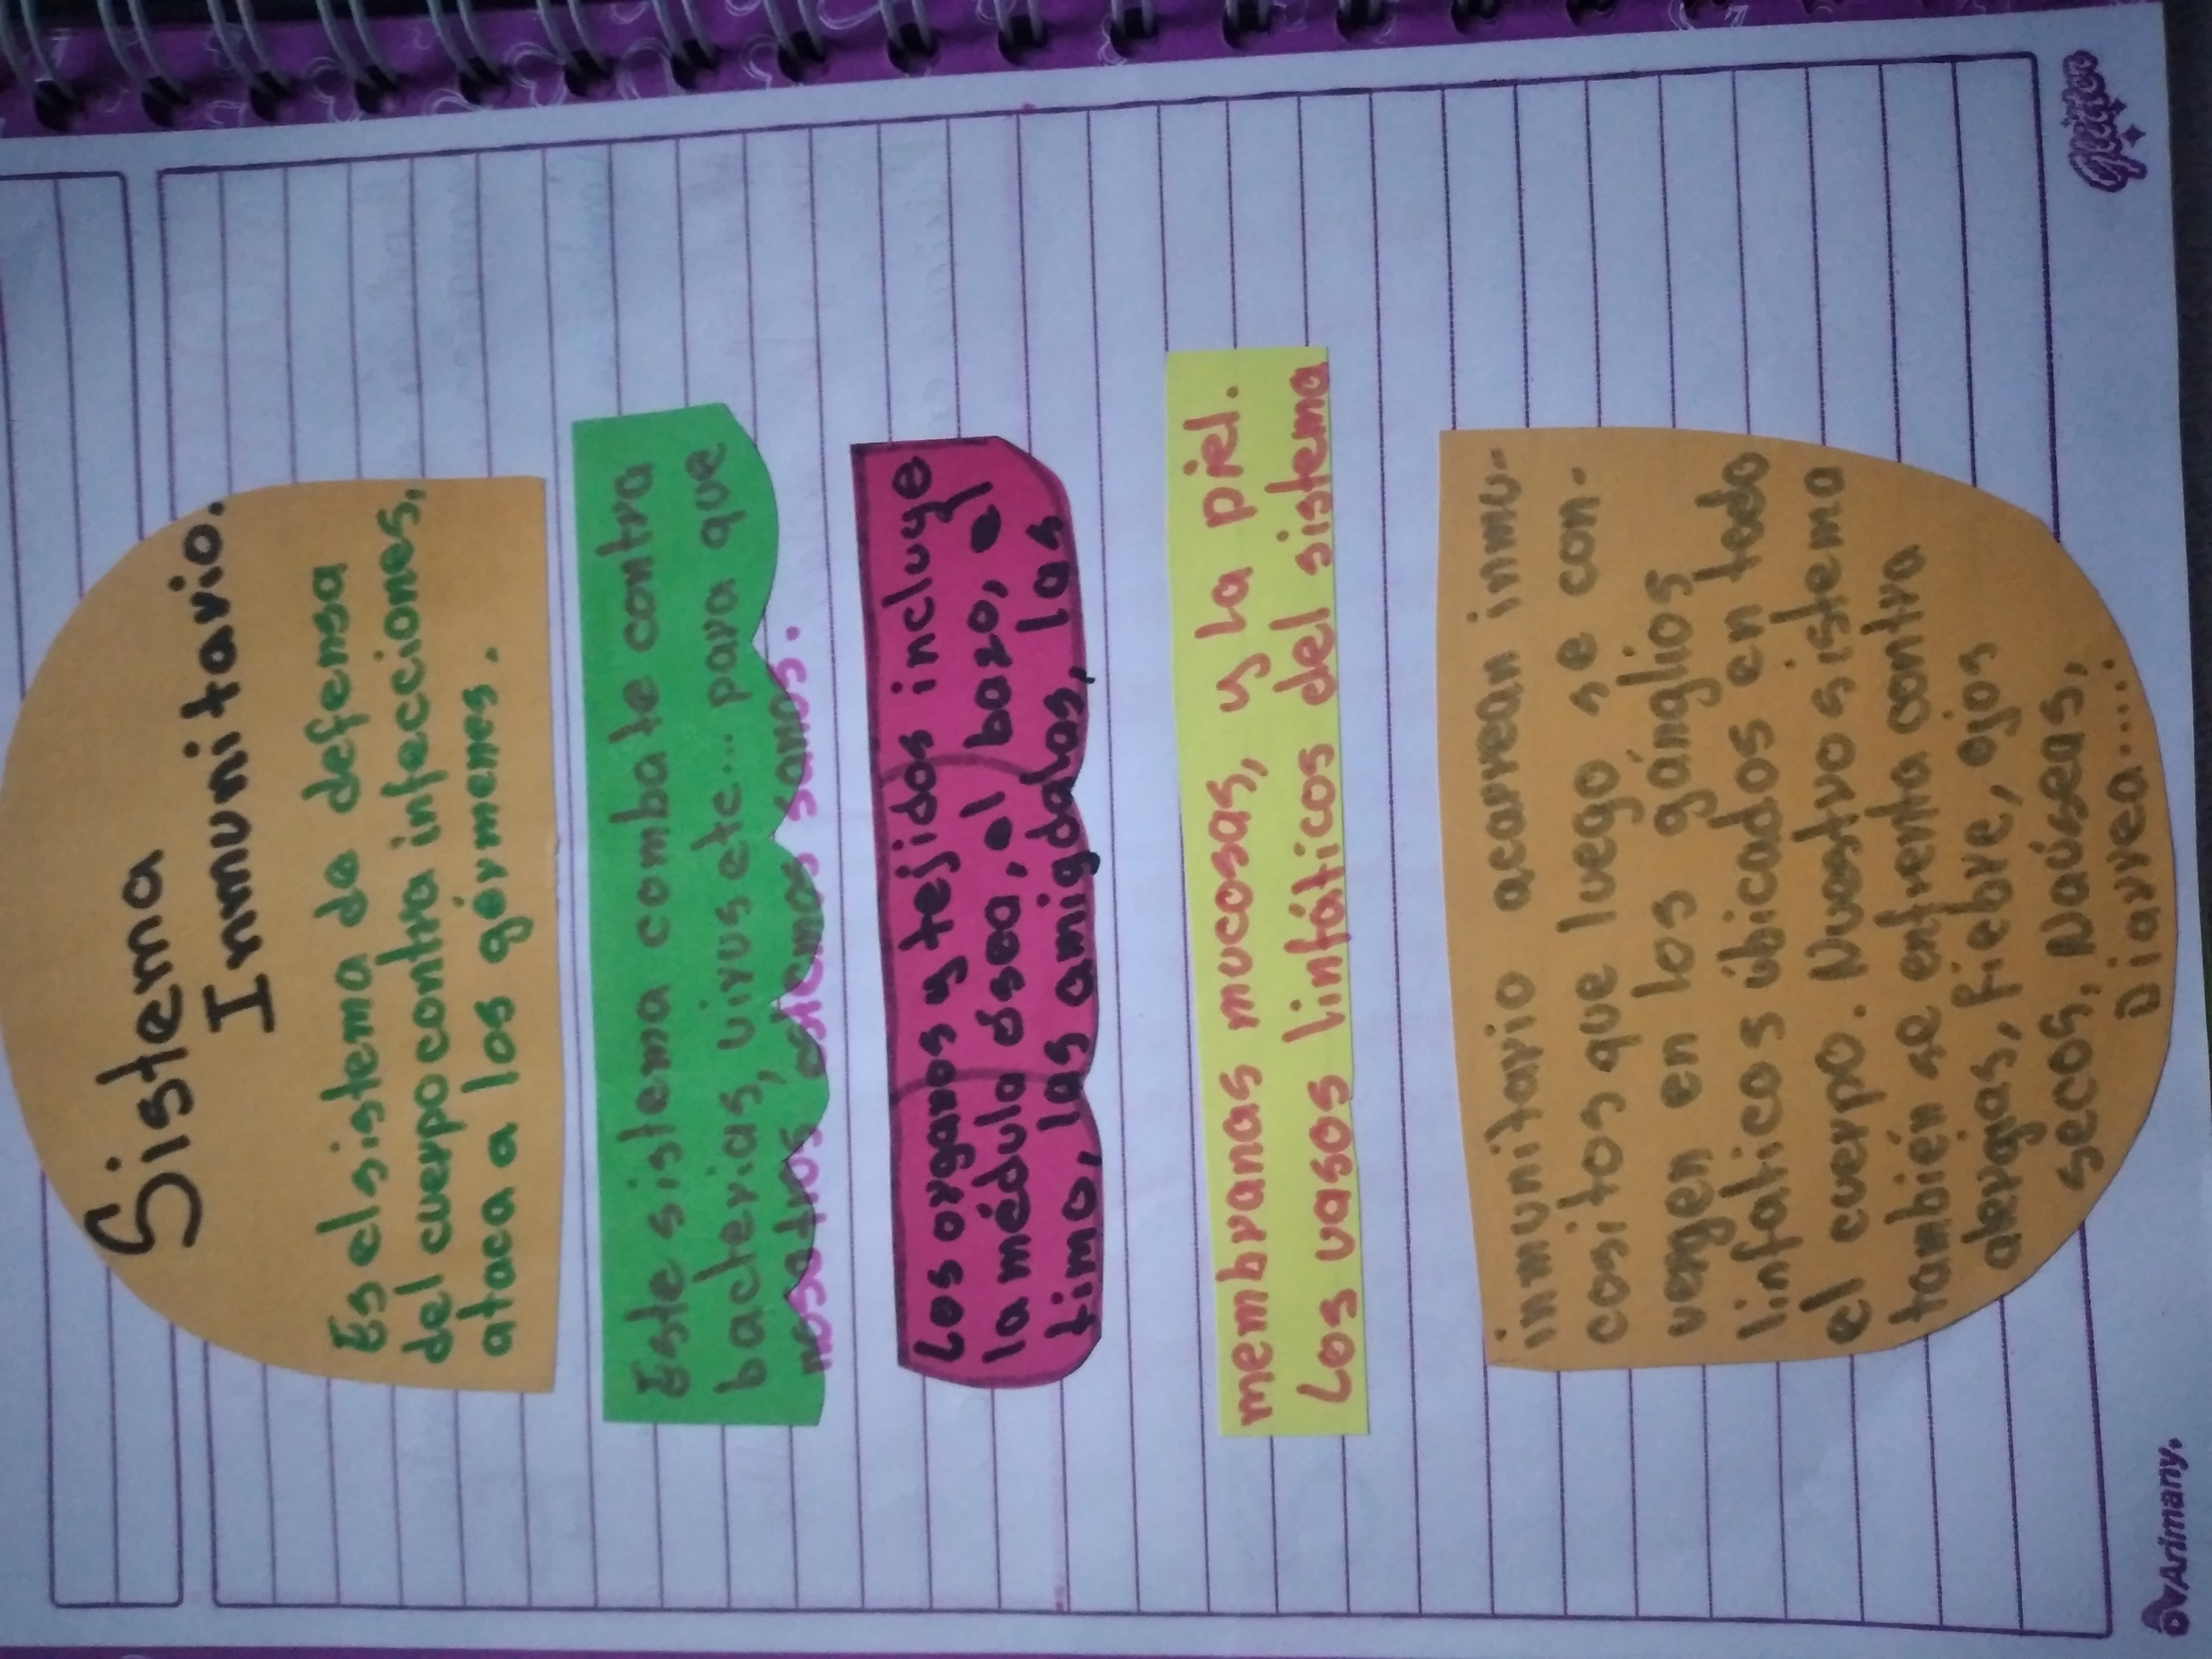 Sistema
Inmunitario.
Es el sistema de defensa
del cuerpo contra infecciones,
ataca a los gérmenes.
Este sistema combate contra
bacterias, virus etc... para que
nosotros estemos sanos.
Los organos y tejidos incluye
la médula ósea, el bazo, el
timo, las amigdalas, las
membranas mucosas, y la piel.
Los vasos linfáticos del sistema
inmunitario acarrean inmu-
cositos que luego se con-
vergen en los gánglios
linfaticos úbicados en todo
el cuerpo. Nuestro sistema
también se enfrenta contra
alergas, fiebre, ojos
secos, Naúseas,
Diarrea.....
Arimany.
Glitter